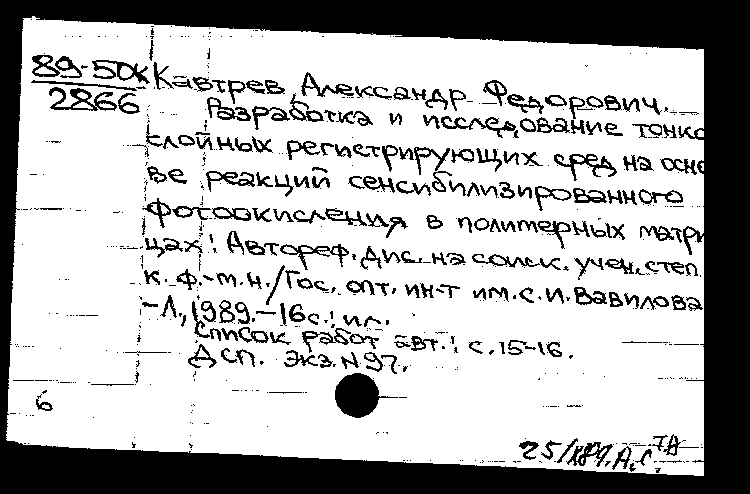 89-50к
2866
Кавтрев, Александр Федорович.
Разработка и исследование тонко
слойных регистрирующих сред на осно
ве реакций сенсибилизированного
фотоокисления в полимерных матри
цах: Автореф. дис. на соиск. учен. степ.
к. ф.-т.н./Гос. опт. ин-т им. С.И. Вавилова
-Л., 1989.-16с.: ил.
Список работ авт.: с.15-16.
ДСП. Экз. N97.
6